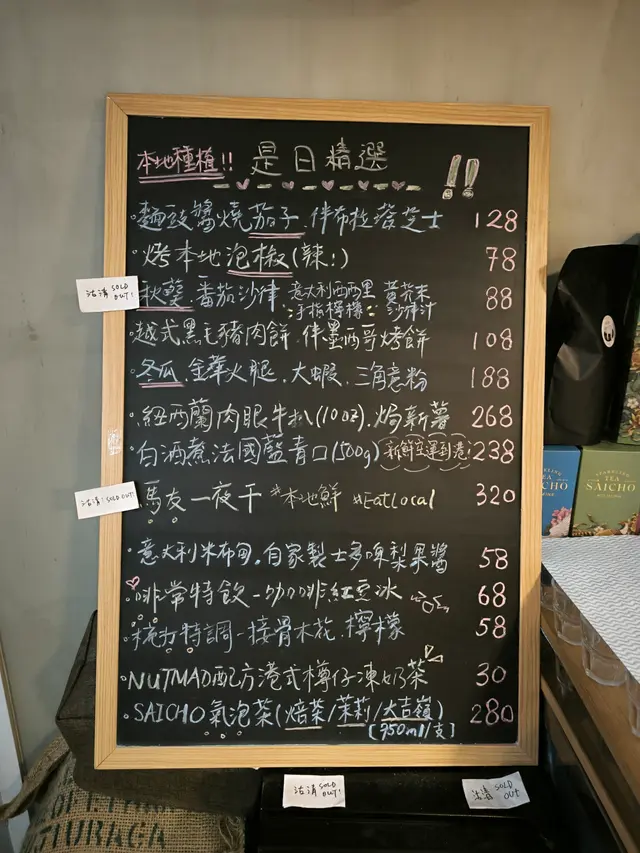 本地種植!! 是日精選 !!
麵豉醬燒茄子.伴布拉塔芝士 128
烤本地泡椒(辣!) 78
沽清 SOLD OUT!
秋葵.番茄沙律 意大利西西里手指檸檬 黃芥末沙律汁 88
越式黑毛豬肉餅.伴墨西哥烤餅 108
冬瓜.金華火腿.大蝦.三角意粉 188
紐西蘭肉眼牛扒(10oz).焗新薯 268
白酒煮法國藍青口(500g) 新鮮空運到港! 238
沽清! SOLD OUT!
馬友一夜干 #本地鮮 #EatLocal 320
意大利米布甸.自家製士多啤梨果醬 58
啡常特飲-咖啡紅豆冰 68
梳打特調-接骨木花.檸檬 58
NUTMAD配方港式樽仔凍奶茶 30
SAICHO氣泡茶(焙茶/茉莉/大吉嶺) 280
[750ml/支]
沽清 SOLD OUT!
沽清 SOLD OUT
TEA
SAICHO
SPARKLING
TEA
SAICHO